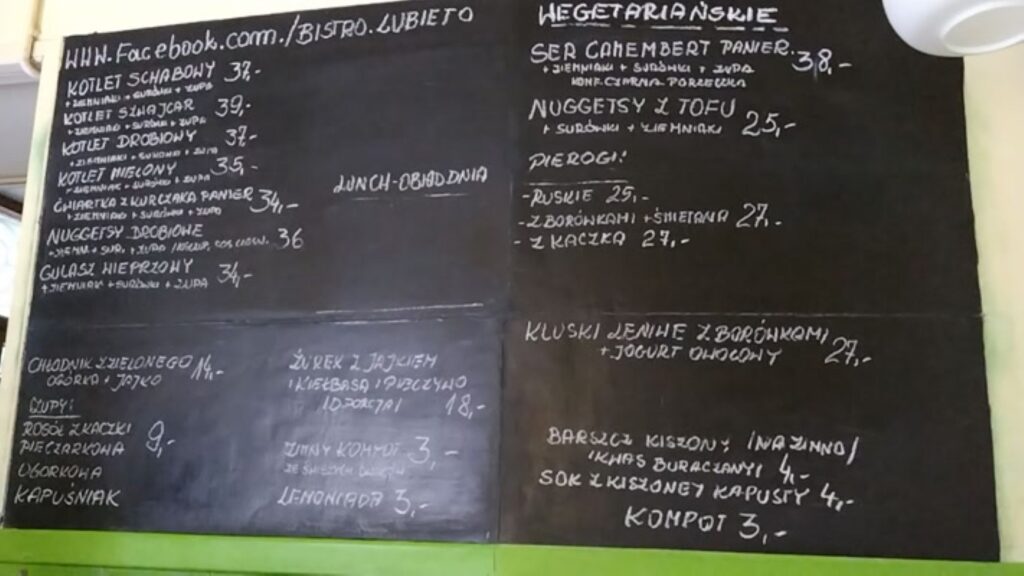 WWW.Facebook.com./BISTRO.LUBIETO
KOTLET SCHABOWY 37,-
+ ZIEMNIAKI + SURÓWKI + ZUPA
KOTLET SZWAJCAR 39,-
+ ZIEMNIAKI + SURÓWKI + ZUPA
KOTLET DROBIOWY 37,-
+ ZIEMNIAKI + SURÓWKI + ZUPA
KOTLET MIELONY 35,-
+ ZIEMNIAKI + SURÓWKI + ZUPA
ĆWIARTKA Z KURCZAKA PANIER 34,-
+ ZIEMNIAKI + SURÓWKI + ZUPA
NUGGETSY DROBIOWE 36
+ ZIEMN + SUR. + ZUPA
GULASZ WIEPRZOWY 34,-
+ ZIEMNIAKI + SURÓWKI + ZUPA
LUNCH-OBIAD DNIA
CHŁODNIK Z ZIELONEGO 14,-
OGÓRKA + JAJKO
ZUPY:
ROSÓŁ Z KACZKI 9,-
PIECZARKOWA
OGORKOWA
KAPUŚNIAK
ŻUREK Z JAJKIEM
I KIEŁBASĄ I PIECZYWO
18,-
ZIMNY KOMPOT 3,-
LEMONIADA 3,-
WEGETARIAŃSKIE
SER CAMEMBERT PANIER. 38,-
+ ZIEMNIAKI + SURÓWKI + ZUPA
KONF. CZARNA PORZECZKA
NUGGETSY Z TOFU 25,-
+ SURÓWKI + ZIEMNIAKI
PIEROGI:
-RUSKIE 25,-
-Z BORÓWKAMI + ŚMIETANA 27,-
- Z KACZKĄ 27,-
KLUSKI LENIWE Z BORÓWKAMI
+ JOGURT OWOCOWY 27,-
BARSZCZ KISZONY /NA ZIMNO/
KWAS BURACZANY 4,-
SOK Z KISZONEJ KAPUSTY 4,-
KOMPOT 3,-